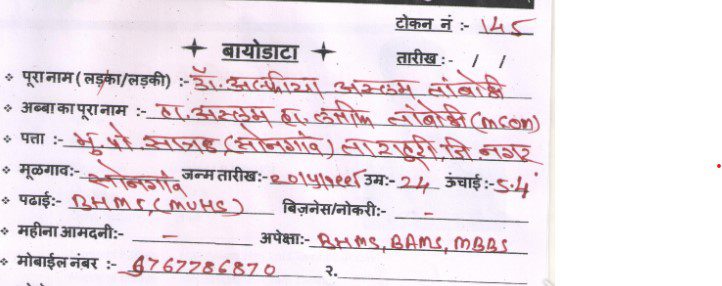 टोकन नं :- 145
बायोडाटा तारीख :- / /
पूरा नाम (लड़का/लड़की) :- डॉ. अल्फीया अस्लम तांबोळी
अब्बा का पूरा नाम :- हा. अस्लम हा. लतीफ तांबोळी (mcom)
पत्ता :- मु. पो. सात्रळ, (सोनगांव) ता राहुरी, जि. नगर
मूळगाव:- सोनगांव जन्म तारीख:- उम्र:- 24 ऊंचाई :- 5.4"
पढाई:- BHMS, (MUHS) बिज़नेस/नोकरी:- -
महीना आमदनी:- - अपेक्षा:- BHMS, BAMS, MBBS
मोबाईल नंबर :- 9767786870 २.